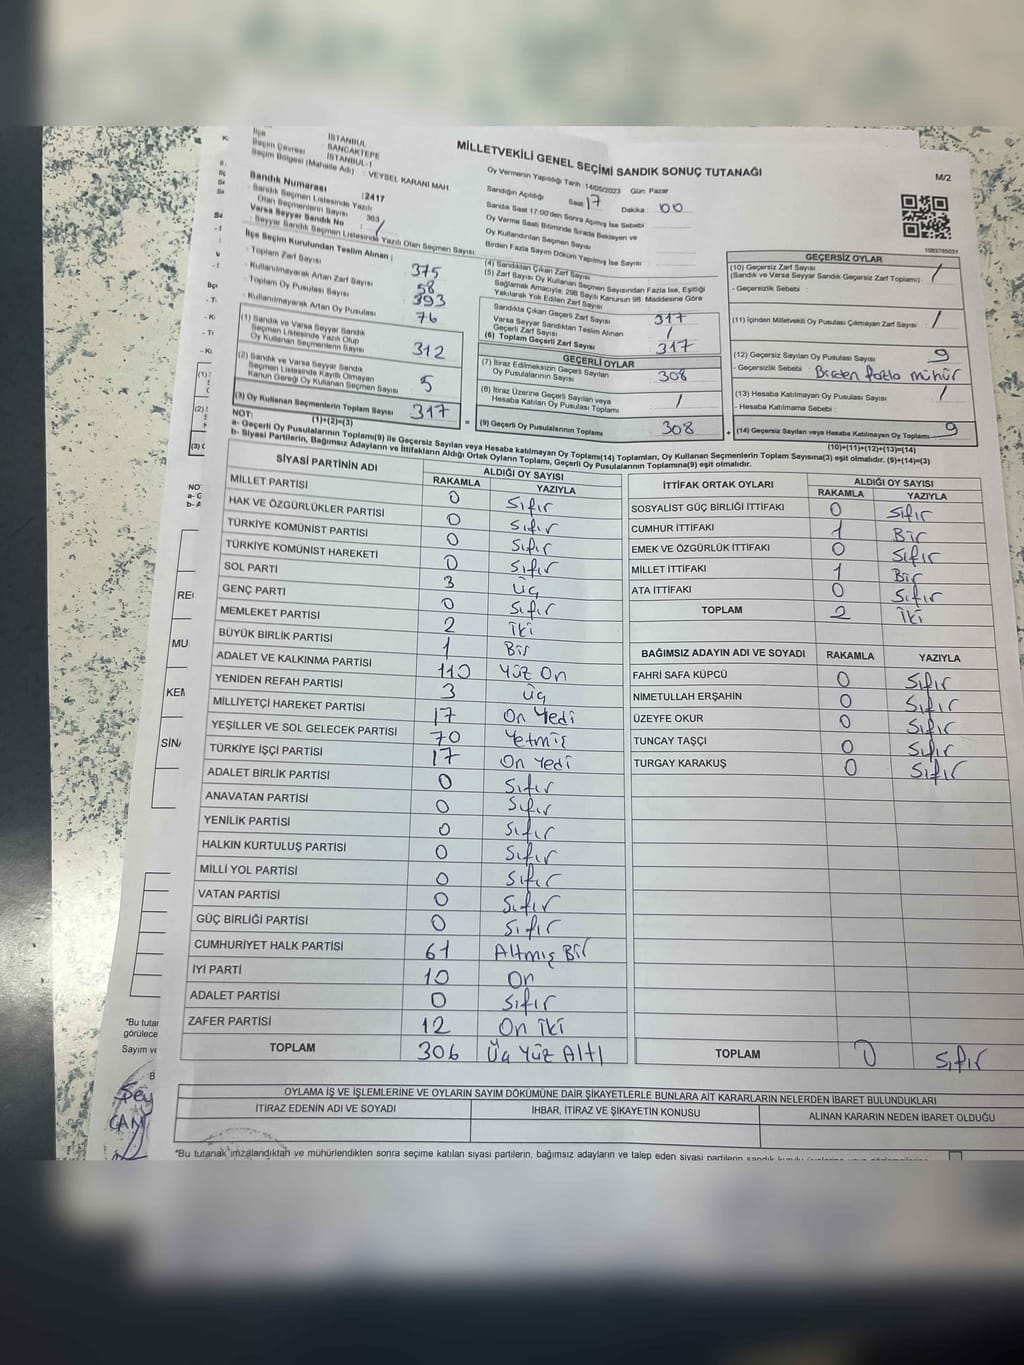 İlçe
Seçim Çevresi
Seçim Bölgesi (Mahalle Adı) :
İSTANBUL
SANCAKTEPE
İSTANBUL-1
VEYSEL KARANİ MAH
MİLLETVEKİLİ GENEL SEÇİMİ SANDIK SONUÇ TUTANAĞI
M/2
Sandık Numarası :2417
Sandık Seçmen Listesinde Yazılı
Olan Seçmenlerin Sayısı : 363
Varsa Seyyar Sandık No :
Seyyar Sandık Seçmen Listesinde Yazılı Olan Seçmen Sayısı
İlçe Seçim Kurulundan Teslim Alınan ;
- Toplam Zarf Sayısı 375
- Kullanılmayarak Artan Zarf Sayısı 58
- Toplam Oy Pusulası Sayısı 393
- Kullanılmayarak Artan Oy Pusulası 76
(1) Sandık ve Varsa Seyyar Sandık
Seçmen Listesinde Yazılı Olup
Oy Kullanan Seçmenlerin Sayısı 312
(2) Sandık ve Varsa Seyyar Sandık
Seçmen Listesinde Kayıtlı Olmayan
Kanun Gereği Oy Kullanan Seçmen Sayısı 5
(3) Oy Kullanan Seçmenlerin Toplam Sayısı 317
(1)+(2)=(3)
Oy Vermenin Yapıldığı Tarih :14/05/2023 Gün: Pazar
Sandığın Açıldığı Saat 17 Dakika : 00
Sandık Saat 17:00'den Sonra Açılmış İse Sebebi :
Oy Verme Saati Bitiminde Sırada Bekleyen ve
Oy Kullandırılan Seçmen Sayısı
Birden Fazla Sayım Döküm Yapılmış İse Sayısı
(4) Sandıktan Çıkan Zarf Sayısı
(5) Zarf Sayısı Oy Kullanan Seçmen Sayısından Fazla İse, Eşitliği
Sağlamak Amacıyla; 298 Sayılı Kanunun 98. Maddesine Göre
Yakılarak Yok Edilen Zarf Sayısı
Sandıkta Çıkan Geçerli Zarf Sayısı 317
Varsa Seyyar Sandıktan Teslim Alınan
Geçerli Zarf Sayısı /
(6) Toplam Geçerli Zarf Sayısı 317
GEÇERLİ OYLAR
(7) İtiraz Edilmeksizin Geçerli Sayılan
Oy Pusulalarının Sayısı 308
(8) İtiraz Üzerine Geçerli Sayılan veya
Hesaba Katılan Oy Pusulası Toplamı /
= (9) Geçerli Oy Pusulalarının Toplamı 308
GEÇERSİZ OYLAR
(10) Geçersiz Zarf Sayısı
(Sandık ve Varsa Seyyar Sandık Geçersiz Zarf Toplamı) /
- Geçersizlik Sebebi :
(11) İçinden Milletvekili Oy Pusulası Çıkmayan Zarf Sayısı /
(12) Geçersiz Sayılan Oy Pusulası Sayısı 9
- Geçersizlik Sebebi : Birden fazla mühür
(13) Hesaba Katılmayan Oy Pusulası Sayısı /
- Hesaba Katılmama Sebebi :
+ (14) Geçersiz Sayılan veya Hesaba Katılmayan Oy Toplamı 9
(10)+(11)+(12)+(13)=(14)
NOT:
a- Geçerli Oy Pusulalarının Toplamı(9) ile Geçersiz Sayılan veya Hesaba katılmayan Oy Toplamı(14) Toplamları, Oy Kullanan Seçmenlerin Toplam Sayısına(3) eşit olmalıdır. (9)+(14)=(3)
b- Siyasi Partilerin, Bağımsız Adayların ve İttifakların Aldığı Ortak Oyların Toplamı, Geçerli Oy Pusulalarının Toplamına(9) eşit olmalıdır.
SİYASİ PARTİNİN ADI ALDIĞI OY SAYISI
RAKAMLA YAZIYLA
MİLLET PARTİSİ 0 Sıfır
HAK VE ÖZGÜRLÜKLER PARTİSİ 0 Sıfır
TÜRKİYE KOMÜNİST PARTİSİ 0 Sıfır
TÜRKİYE KOMÜNİST HAREKETİ 0 Sıfır
SOL PARTİ 3 üç
GENÇ PARTİ 0 Sıfır
MEMLEKET PARTİSİ 2 iki
BÜYÜK BİRLİK PARTİSİ 1 Bir
ADALET VE KALKINMA PARTİSİ 110 Yüz On
YENİDEN REFAH PARTİSİ 3 üç
MİLLİYETÇİ HAREKET PARTİSİ 17 On Yedi
YEŞİLLER VE SOL GELECEK PARTİSİ 70 Yetmiş
TÜRKİYE İŞÇİ PARTİSİ 17 On Yedi
ADALET BİRLİK PARTİSİ 0 Sıfır
ANAVATAN PARTİSİ 0 Sıfır
YENİLİK PARTİSİ 0 Sıfır
HALKIN KURTULUŞ PARTİSİ 0 Sıfır
MİLLİ YOL PARTİSİ 0 Sıfır
VATAN PARTİSİ 0 Sıfır
GÜÇ BİRLİĞİ PARTİSİ 0 Sıfır
CUMHURİYET HALK PARTİSİ 61 Altmış Bir
İYİ PARTİ 10 On
ADALET PARTİSİ 0 Sıfır
ZAFER PARTİSİ 12 On İki
TOPLAM 306 Üç Yüz Altı
İTTİFAK ORTAK OYLARI ALDIĞI OY SAYISI
RAKAMLA YAZIYLA
SOSYALİST GÜÇ BİRLİĞİ İTTİFAKI 0 Sıfır
CUMHUR İTTİFAKI 1 Bir
EMEK VE ÖZGÜRLÜK İTTİFAKI 0 Sıfır
MİLLET İTTİFAKI 1 Bir
ATA İTTİFAKI 0 Sıfır
TOPLAM 2 iki
BAĞIMSIZ ADAYIN ADI VE SOYADI RAKAMLA YAZIYLA
FAHRİ SAFA KÜPCÜ 0 Sıfır
NİMETULLAH ERŞAHİN 0 Sıfır
ÜZEYFE OKUR 0 Sıfır
TUNCAY TAŞÇI 0 Sıfır
TURGAY KARAKUŞ 0 Sıfır
TOPLAM 0 Sıfır
OYLAMA İŞ VE İŞLEMLERİNE VE OYLARIN SAYIM DÖKÜMÜNE DAİR ŞİKAYETLERLE BUNLARA AİT KARARLARIN NELERDEN İBARET BULUNDUKLARI
İTİRAZ EDENİN ADI VE SOYADI İHBAR, İTİRAZ VE ŞİKAYETİN KONUSU ALINAN KARARIN NEDEN İBARET OLDUĞU
*Bu tutanak imzalandıktan ve mühürlendikten sonra seçime katılan siyasi partilerin, bağımsız adayların ve talep eden siyasi partilerin